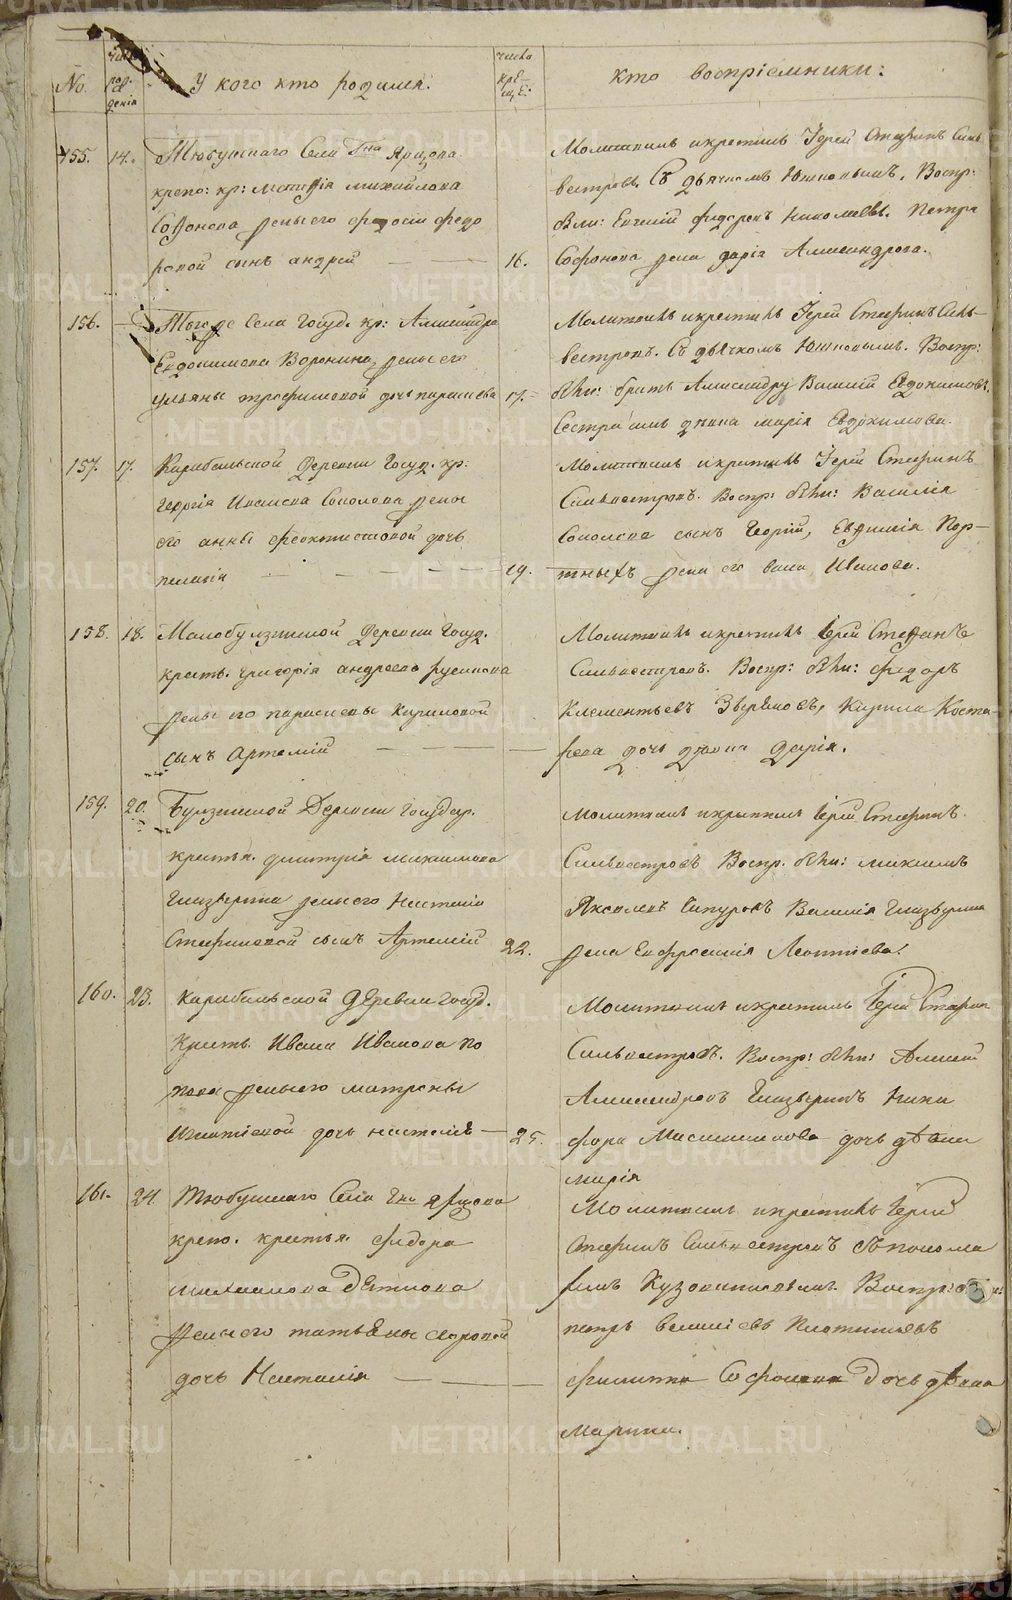 No.
число рождения
У кого кто родился.
число креще:
кто восприемники:
155. 14. Тюбушнаго Села Гна Ярцова
крепо: кр: михайлова
Софонова жены его федосьи федо
ровой сынъ андрей
16.
Молитвилъ и крестилъ Іерей Стефанъ Силь
вестровъ. Съ дьячкомъ Воспр:
были: Евгеній федоровъ Николаевъ. Петра
Софонова жена дарія Александрова.
156. Тогоже Села Госуд. кр: Александра
Евдокимова Воронина жены его
ульяны трофимовой дочь параскева
17.
Молитвилъ и крестилъ Іерей Стефанъ Силь-
вестровъ. Съ дьячкомъ Воспр:
были: братъ Александру Василій Евдокимовъ,
Сестра имъ девка марія Евдокимова.
157. 17. Карабольской Деревни Госуд. кр:
Георгія Иванова Соколова жены
его анны феоктистовой дочь
пелагія
19.
Молитвилъ и крестилъ Іерей Стефанъ
Сильвестровъ. Воспр: были: Василія
Соколова сынъ Георгій, Евдокия Пор-
тныхъ жена его Иванова.
158. 18. Малобулзинской Деревни Госуд.
крестъ. григорія андреева русинова
жены его параскевы Кириловой
сынъ Артемій
Молитвилъ и крестилъ Іерей Стефанъ
Сильвестровъ. Воспр: были: федоръ
Клементьевъ Зверевъ, Кирила Коста-
рева дочь девка Дарія.
159. 20. Булзинской Деревни Государ.
крестья. димитрія максимова
Глазырина жены его Настасіи
Стефановой сынъ Артемій
22.
Молитвилъ и крестилъ Іерей Стефанъ
Сильвестровъ Воспр. были: максимъ
Яковлевъ Чипуровъ Василія Глазырина
жена Евфросинія Леонтіева.
160. 23. Карабольской Деревни Госуд.
Крестъ. Ивана Иванова По
пова жены его матроны
Игнатіевой дочь настасія
25.
Молитвилъ и крестилъ Іерей Стефанъ
Сильвестровъ. Воспр: были: Алексей
Александровъ Глазыринъ Ники
фора дочь девка
марія
161. 24 Тюбушнаго Села Гна Ярцова
крепо. крестья. федора
михаилова Деткова
жены его татьяны
дочь Наталия
Молитвилъ и крестилъ Іерей
Стефанъ Сильвестровъ Съ понома
ремъ Воспр: были
петръ василіевъ Плотниковъ
филиппа Софонова Дочь девка
Марина.